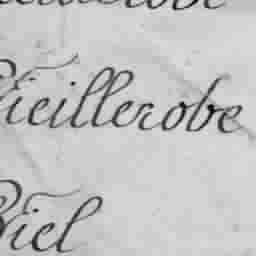 Vieillerobe
Viel